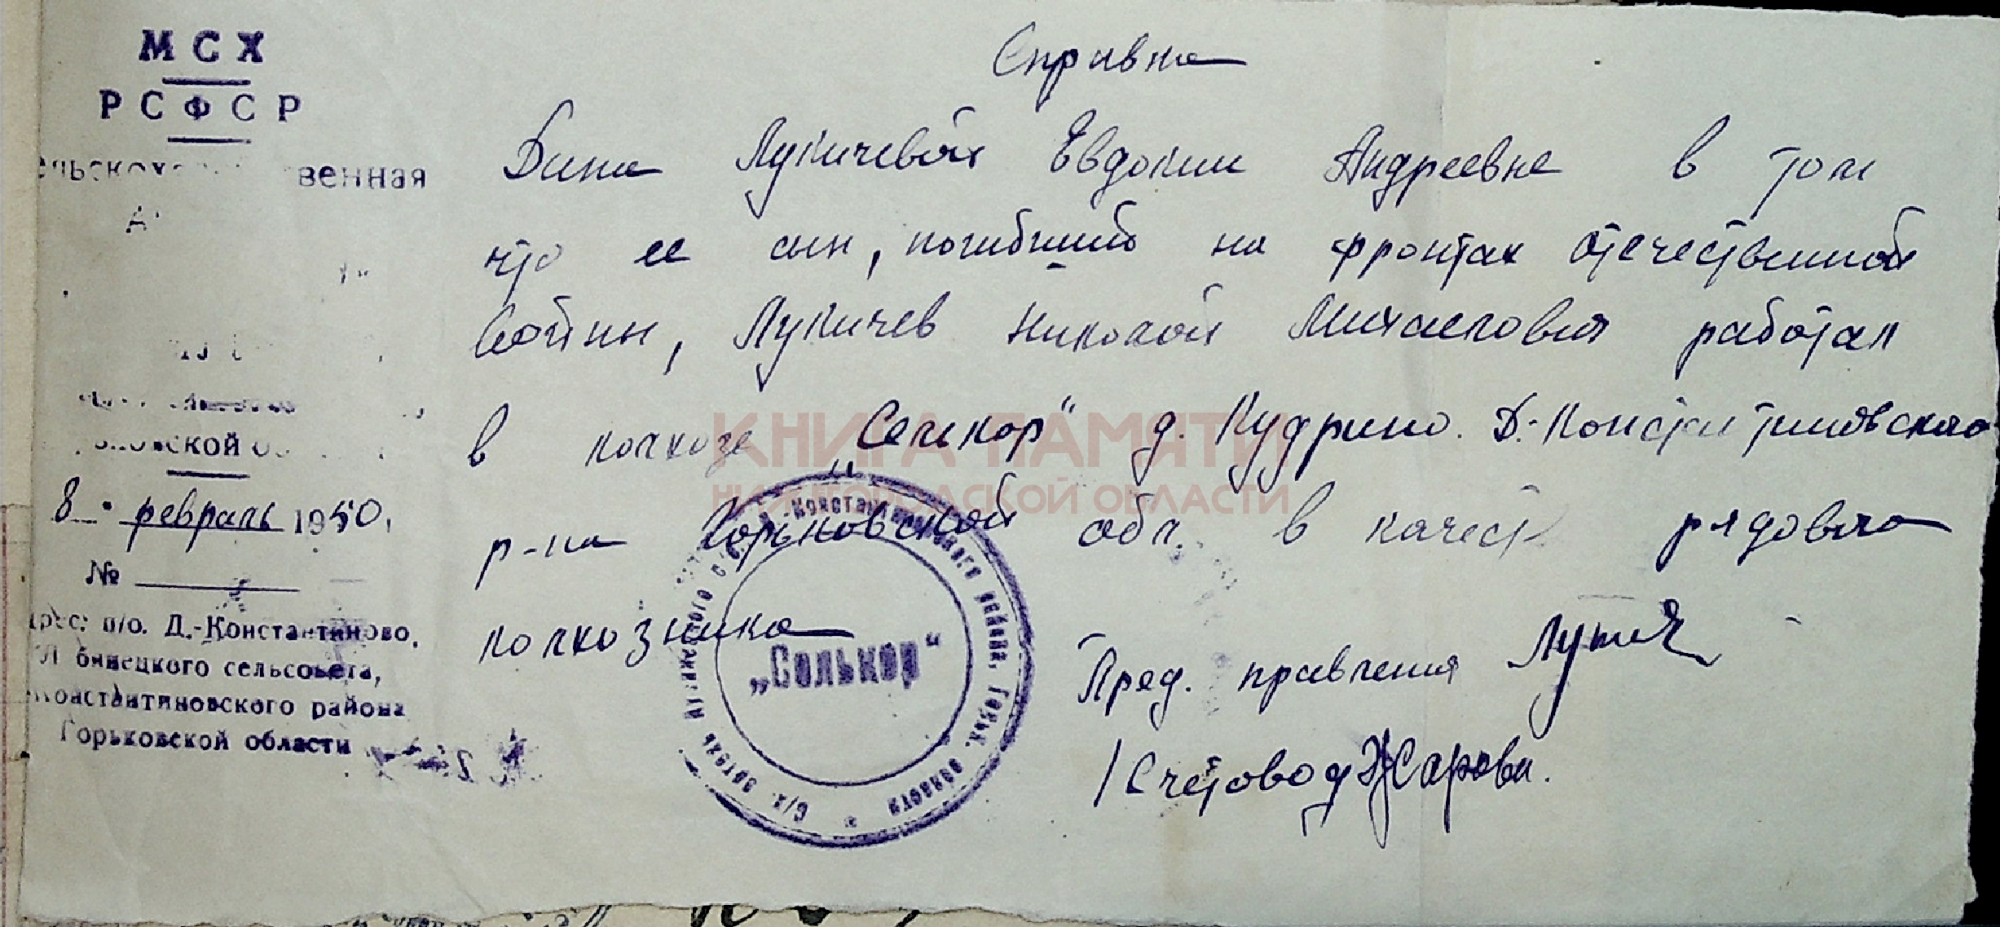 МСХ
РСФСР
венная
8 . февраль 1950,
№
п/о. Д.-Константиново,
сельсовета,
Константиновского района
Горьковской области
Справка
Дана Лукичевой Евдокии Андреевне в том
что ее сын, погибший на фронтах отечественной
войны, Лукичев Николай Михаелович работал
в колхозе „Селькор" д. Кудрино. Д.-Константиновского
р-на Горьковской обл. в качест рядовго
колхозника
Пред. правления Лукич
/Счетовод Жарова.
„Селькор"
района, Горьк. области * С/х. артель
КНИГА ПАМЯТИ
НИЖЕГОРОДСКОЙ ОБЛАСТИ